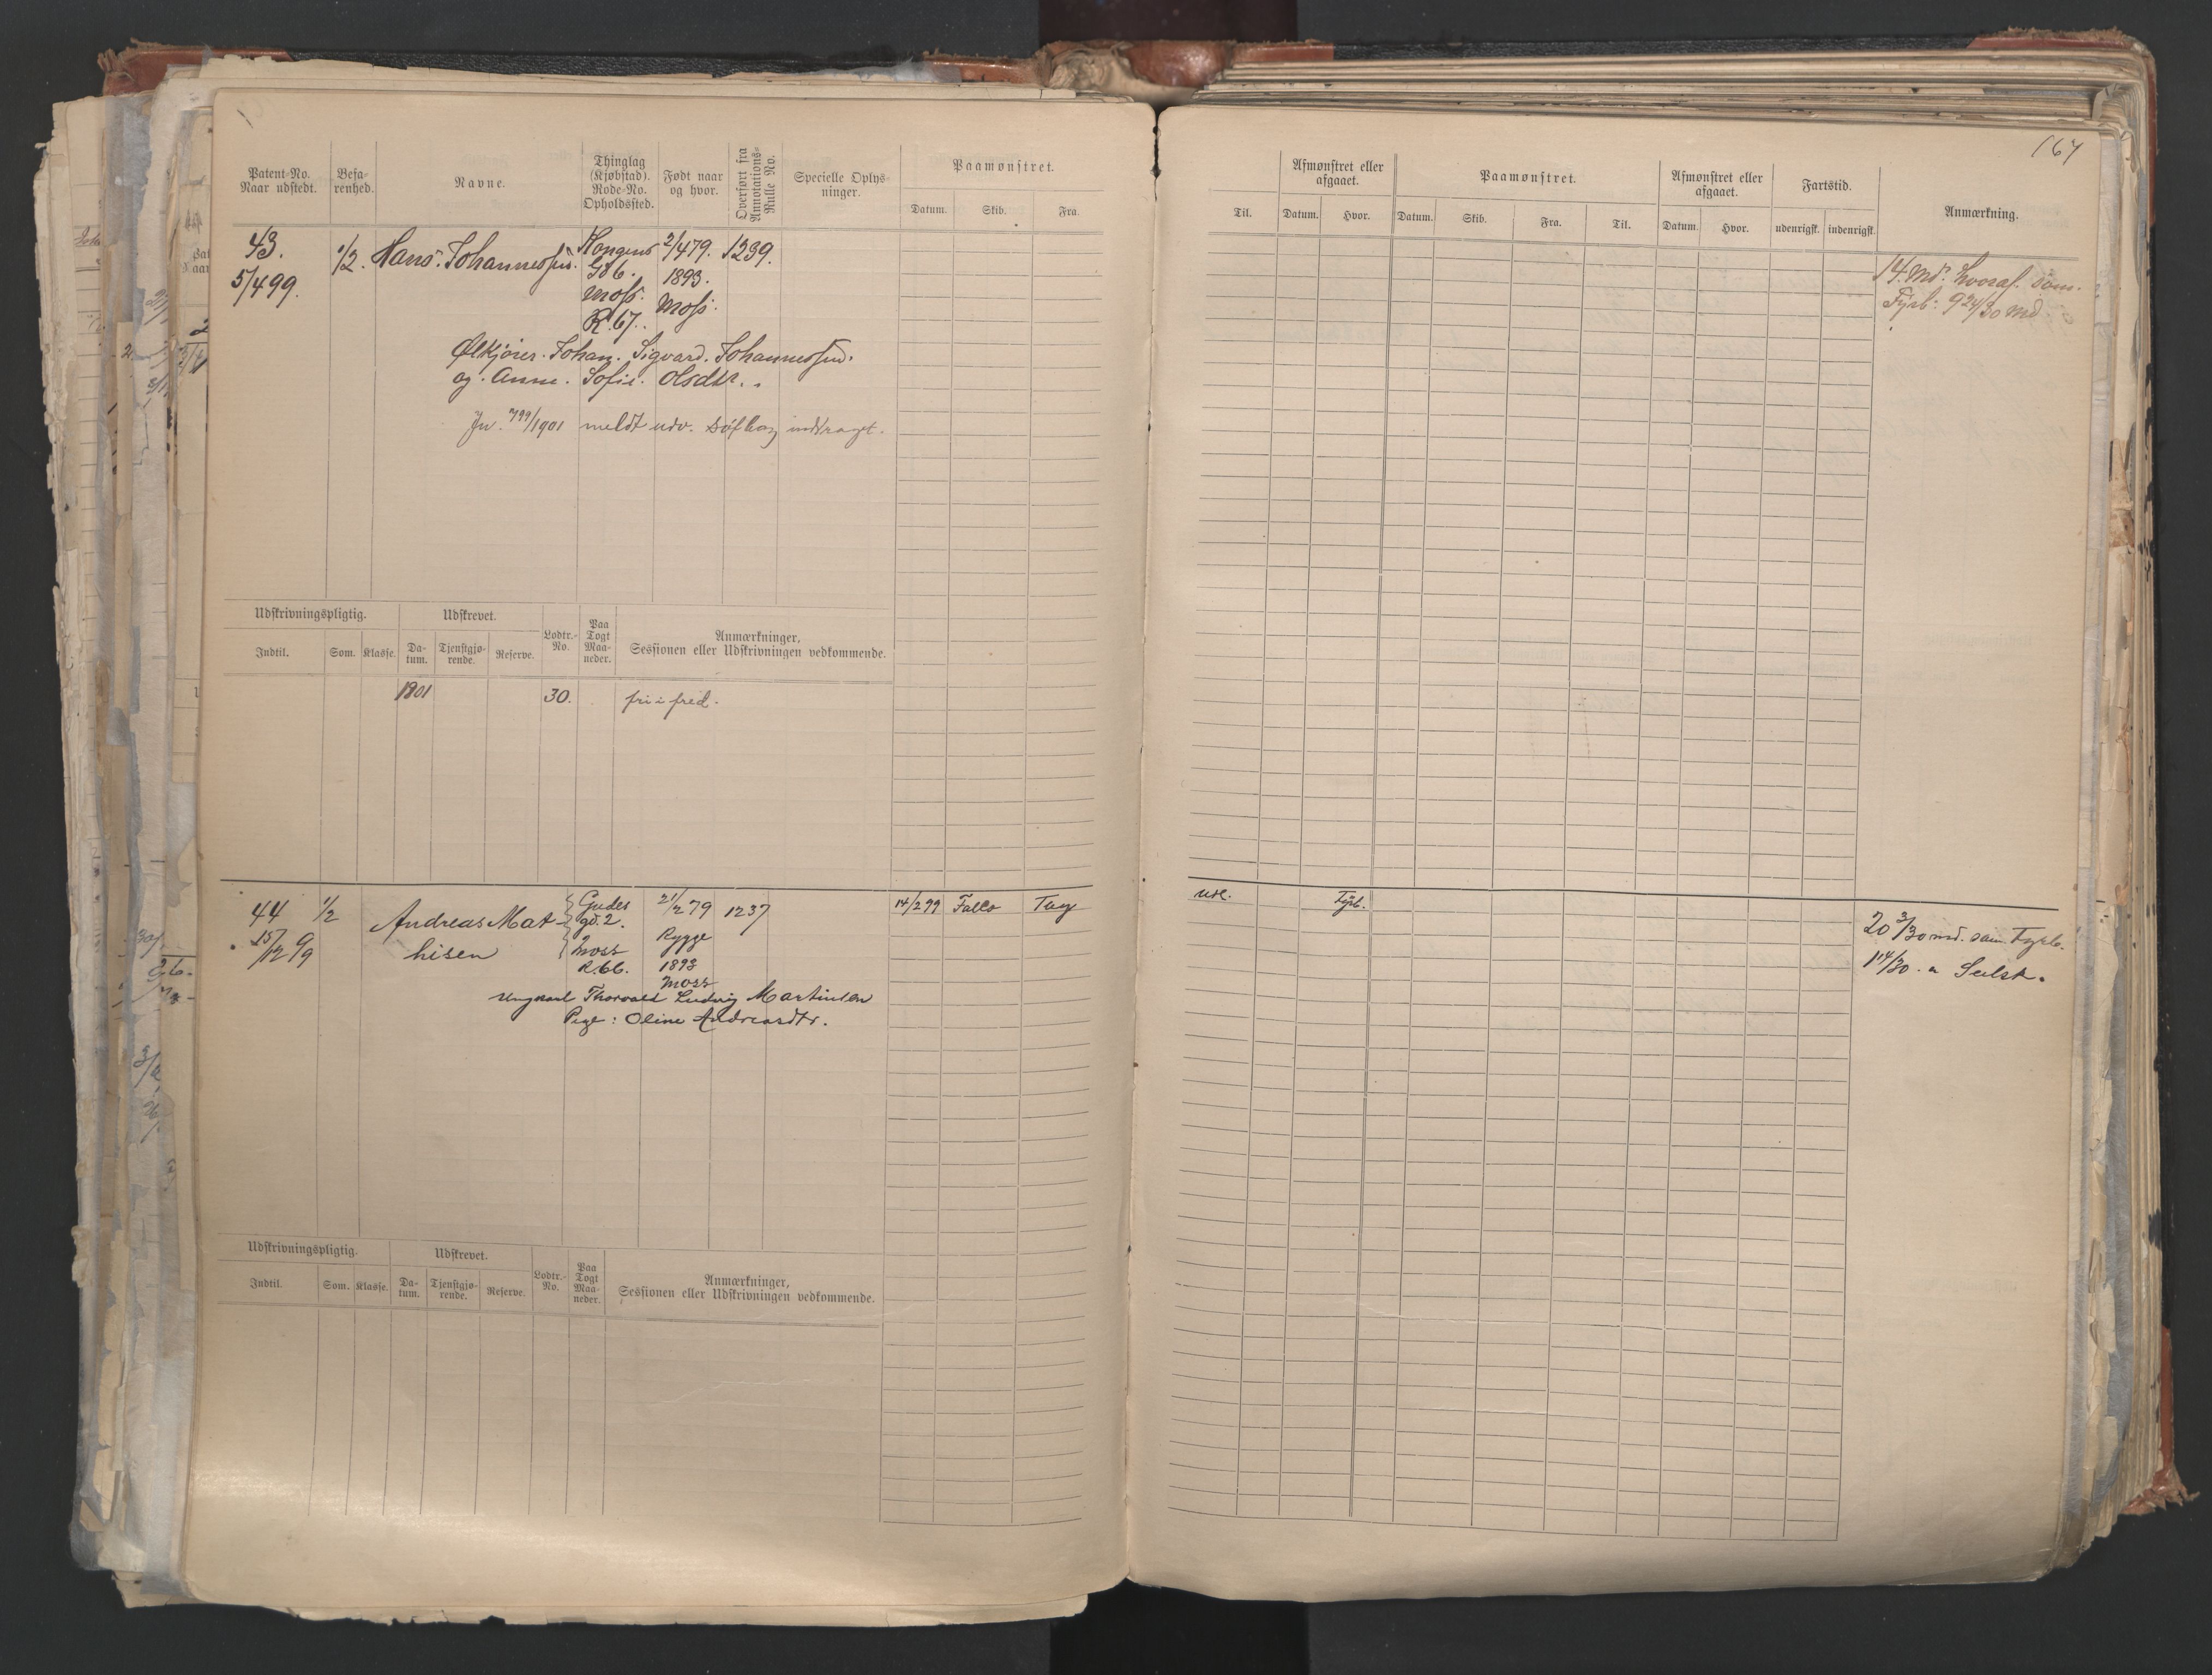 167
Patent-No. Naar udstedt. Befarenhed. Navne. Thinglag (Kjøbstad). Rode-No. Opholdssted. Født naar og hvor. Overført fra Annotations-Rulle No. Specielle Oplysninger. Paamønstret. Datum. Skib. Fra.
Til. Afmønstret eller afgaaet. Datum. Hvor. Paamønstret. Datum. Skib. Fra. Til. Afmønstret eller afgaaet. Datum. Hvor. Fartstid. udenrigsk. indenrigsk. Anmærkning.
43. 1/2. Hans. Johannessen. Kongens 2/4 79. 1239.
5/4 99. G6b. 1893.
Moss. Moss.
R. 67.
14. Md. hvoraf som
Fyrb: 9 24/30 Md
Ølkjører. Johan. Sigvard. Johannessen.
og. Anne. Sofie. Olsdtr.
Jn. 799/1901 meldt udv. inddraget.
Udskrivningspligtig. Udskrevet. Lodtr.-No. Paa Togt Maaneder. Anmærkninger, Sessionen eller Udskrivningen vedkommende.
Indtil. Som. Klasse. Datum. Tjenstgjørende. Reserve.
1901 30. fri i fred.
44 1/2 Andreas Mat- Gudes 21/2 79 1237 14/2 99 Falco Tbg
udl. Fyrb.
15/12 99 hisen gd. 2. Rygge
Moss 1893
R. 66. Moss
20 3/30 md. som Fyrb.
1 14/30 . " Seilsk.
Ungkarl Thorvald Ludvig Martinsen
Pige: Oline Andreasdtr.
Udskrivningspligtig. Udskrevet. Lodtr.-No. Paa Togt Maaneder. Anmærkninger, Sessionen eller Udskrivningen vedkommende.
Indtil. Som. Klasse. Datum. Tjenstgjørende. Reserve.